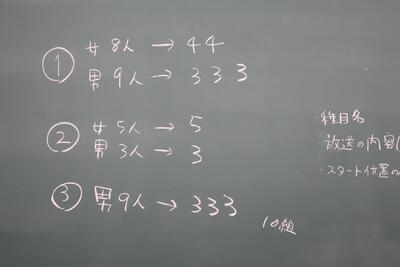 ① 女 8人 → 44
男 9人 → 333
② 女 5人 → 5
男 3人 → 3
③ 男 9人 → 333
10組
・種目名
・放送の内容(
・スタート位置の